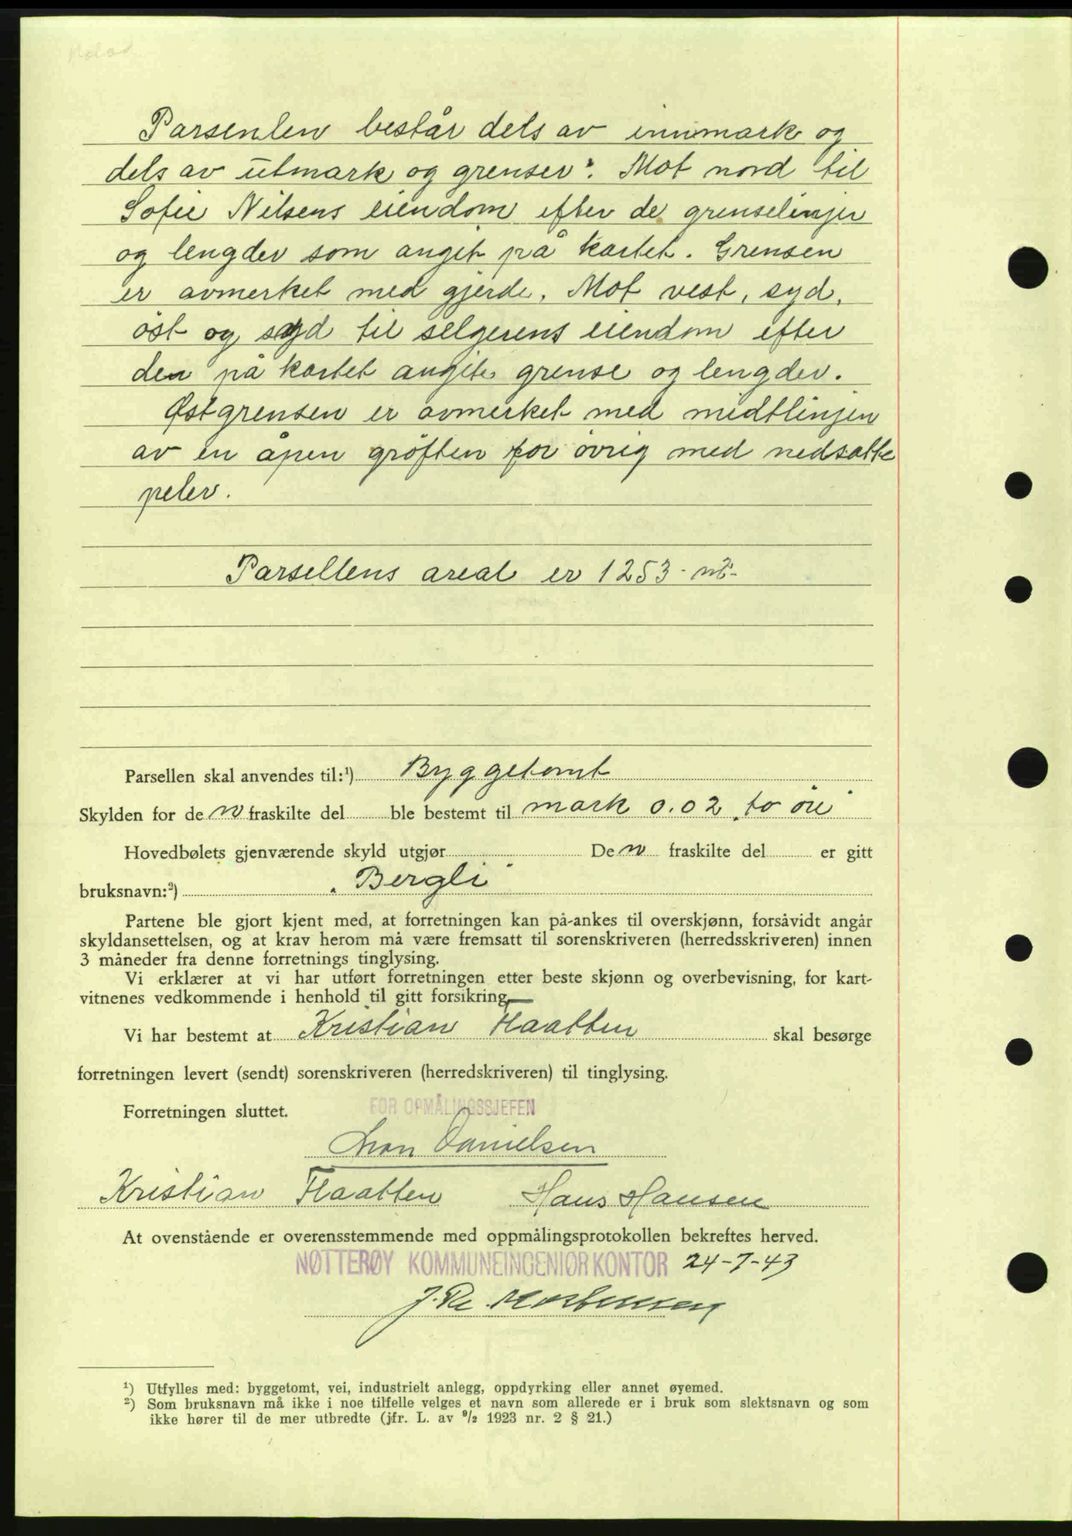 Parsenlen består dels av innmark og
dels av utmark og grenser: Mot nord til
Sofie Nilsens eiendom efter de grenselinjer
og lengder som angit på kartet. Grensen
er avmerket med gjerde. Mot vest, syd,
øst og syd til selgerens eiendom efter
den på kartet angite grense og lengder.
Østgrensen er avmerket med midtlinjen
av en åpen grøften for øvrig med nedsatte
peler.
Parsellens areal er 1253 m².
Parsellen skal anvendes til:¹) Byggetomt
Skylden for de n fraskilte del ble bestemt til mark 0.02 „to øre"
Hovedbølets gjenværende skyld utgjør De n fraskilte del er gitt
bruksnavn:²) „Bergli"
Partene ble gjort kjent med, at forretningen kan på-ankes til overskjønn, forsåvidt angår
skyldansettelsen, og at krav herom må være fremsatt til sorenskriveren (herredsskriveren) innen
3 måneder fra denne forretnings tinglysing.
Vi erklærer at vi har utført forretningen etter beste skjønn og overbevisning, for kart-
vitnenes vedkommende i henhold til gitt forsikring.
Vi har bestemt at Kristian Haatten skal besørge
forretningen levert (sendt) sorenskriveren (herredskriveren) til tinglysing.
Forretningen sluttet. FOR OPMÅLINGSSJEFEN
Danielsen
Kristian Haatten Hans Hansen
At ovenstående er overensstemmende med oppmålingsprotokollen bekreftes herved.
NØTTERØY KOMMUNEINGENIØRKONTOR 24-7-43
¹) Utfylles med: byggetomt, vei, industrielt anlegg, oppdyrking eller annet øyemed.
²) Som bruksnavn må ikke i noe tilfelle velges et navn som allerede er i bruk som slektsnavn og som
ikke hører til de mer utbredte (jfr. L. av ⁹/₂ 1923 nr. 2 § 21.)